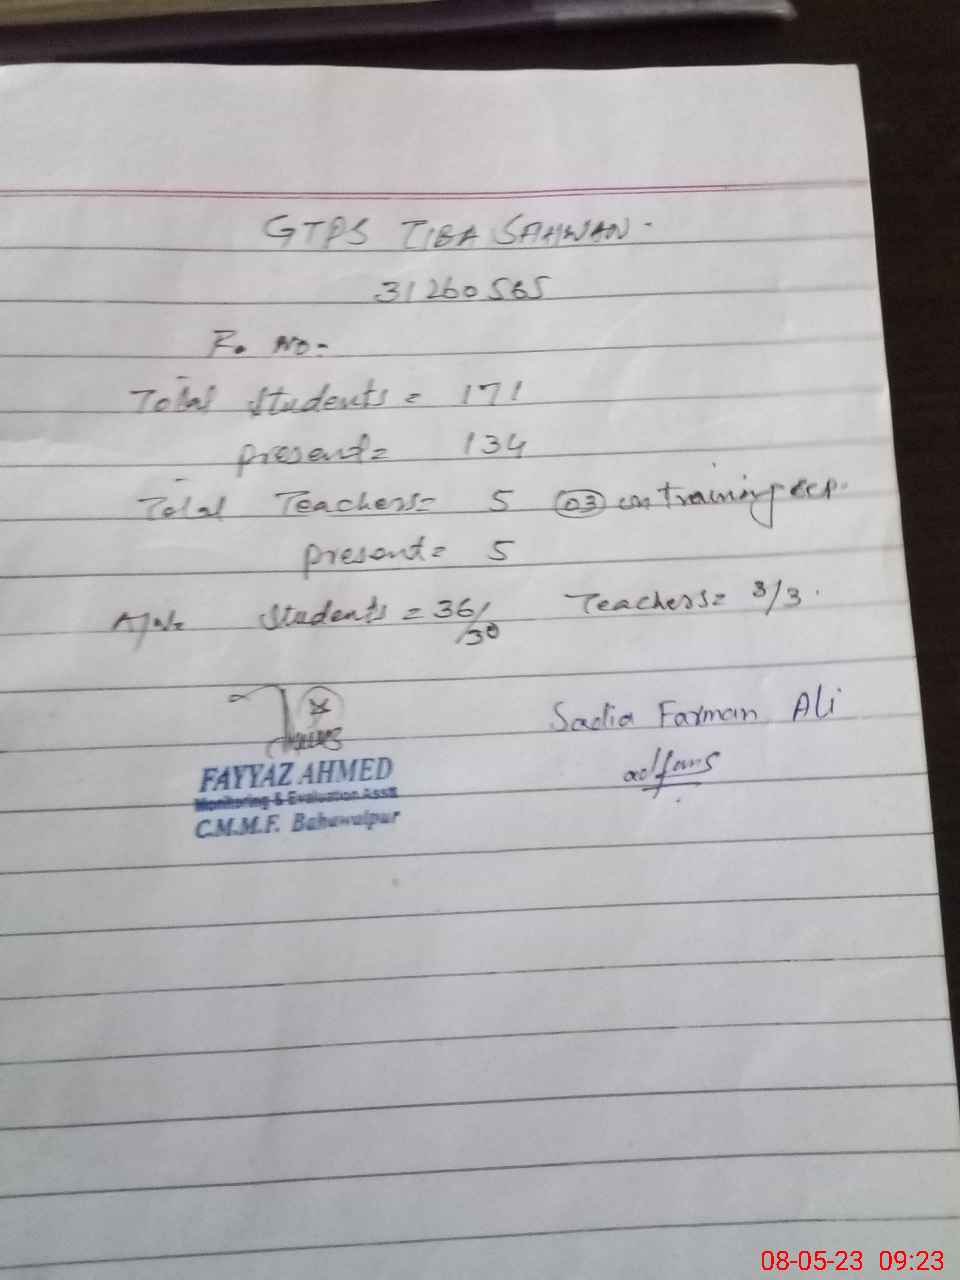 GTPS TIBA SAHWAN -
31260565
F. No -
Total Students = 171
present = 134
Total Teachers = 5 (03) on training
present = 5
Students = 36/30 Teachers = 3/3 .
Sadia Farman Ali
FAYYAZ AHMED
Monitoring & Evaluation Asstt
C.M.M.F. Bahawalpur
08-05-23 09:23